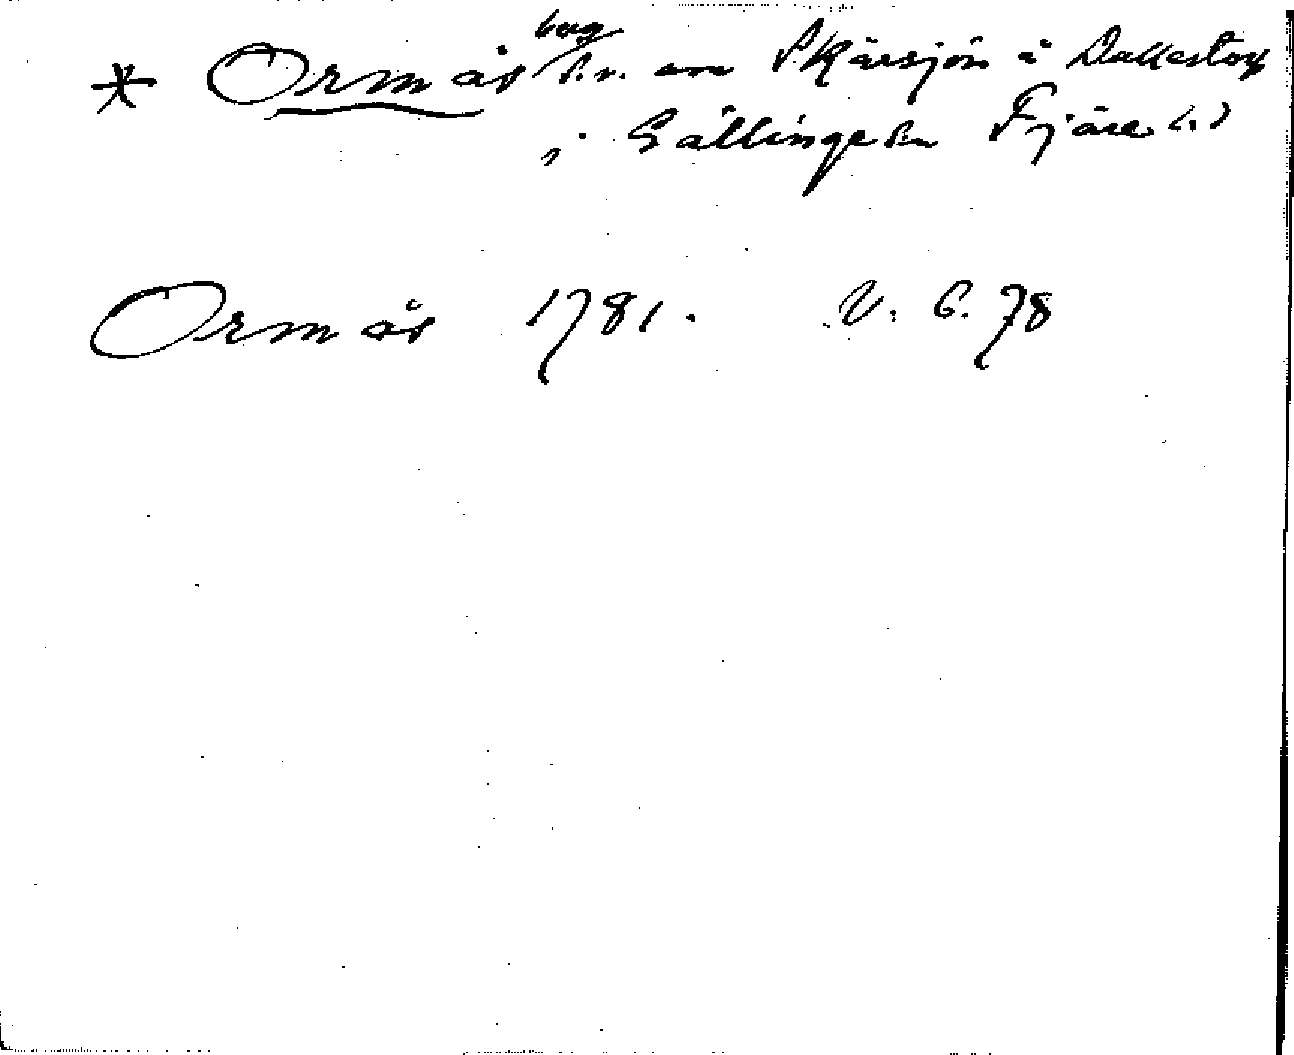 * Ormås berg s.v. om Skärsjön å Dallestorp
i Gällinge sn Fjäre h.d
Ormås 1781. V. G. 78